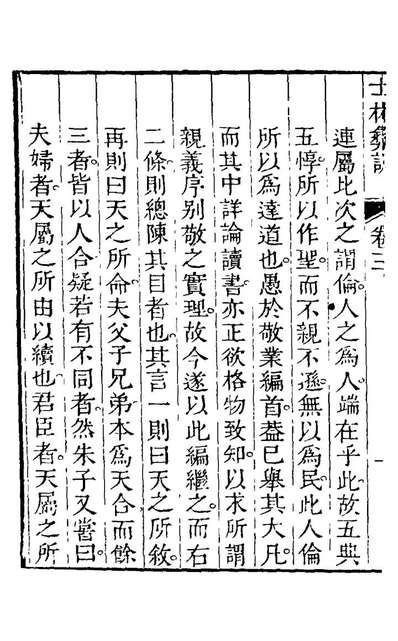 士林彝訓 卷三 一
連屬比次之謂倫。人之為人。端在乎此。故五典
五惇。所以作聖。而不親不遜。無以為民。此人倫
所以為達道也。愚於敬業編首。葢已舉其大凡。
而其中詳論讀書。亦正欲格物致知。以求所謂
親義序別敬之實理。故今遂以此編繼之。而右
二條則總陳其目者也。其言一則曰天之所敘。
再則曰天之所命。夫父子兄弟。本為天合而餘
三者。皆以人合。疑若有不同者。然朱子又嘗曰。
夫婦者天屬之所由以續也。君臣者。天屬之所